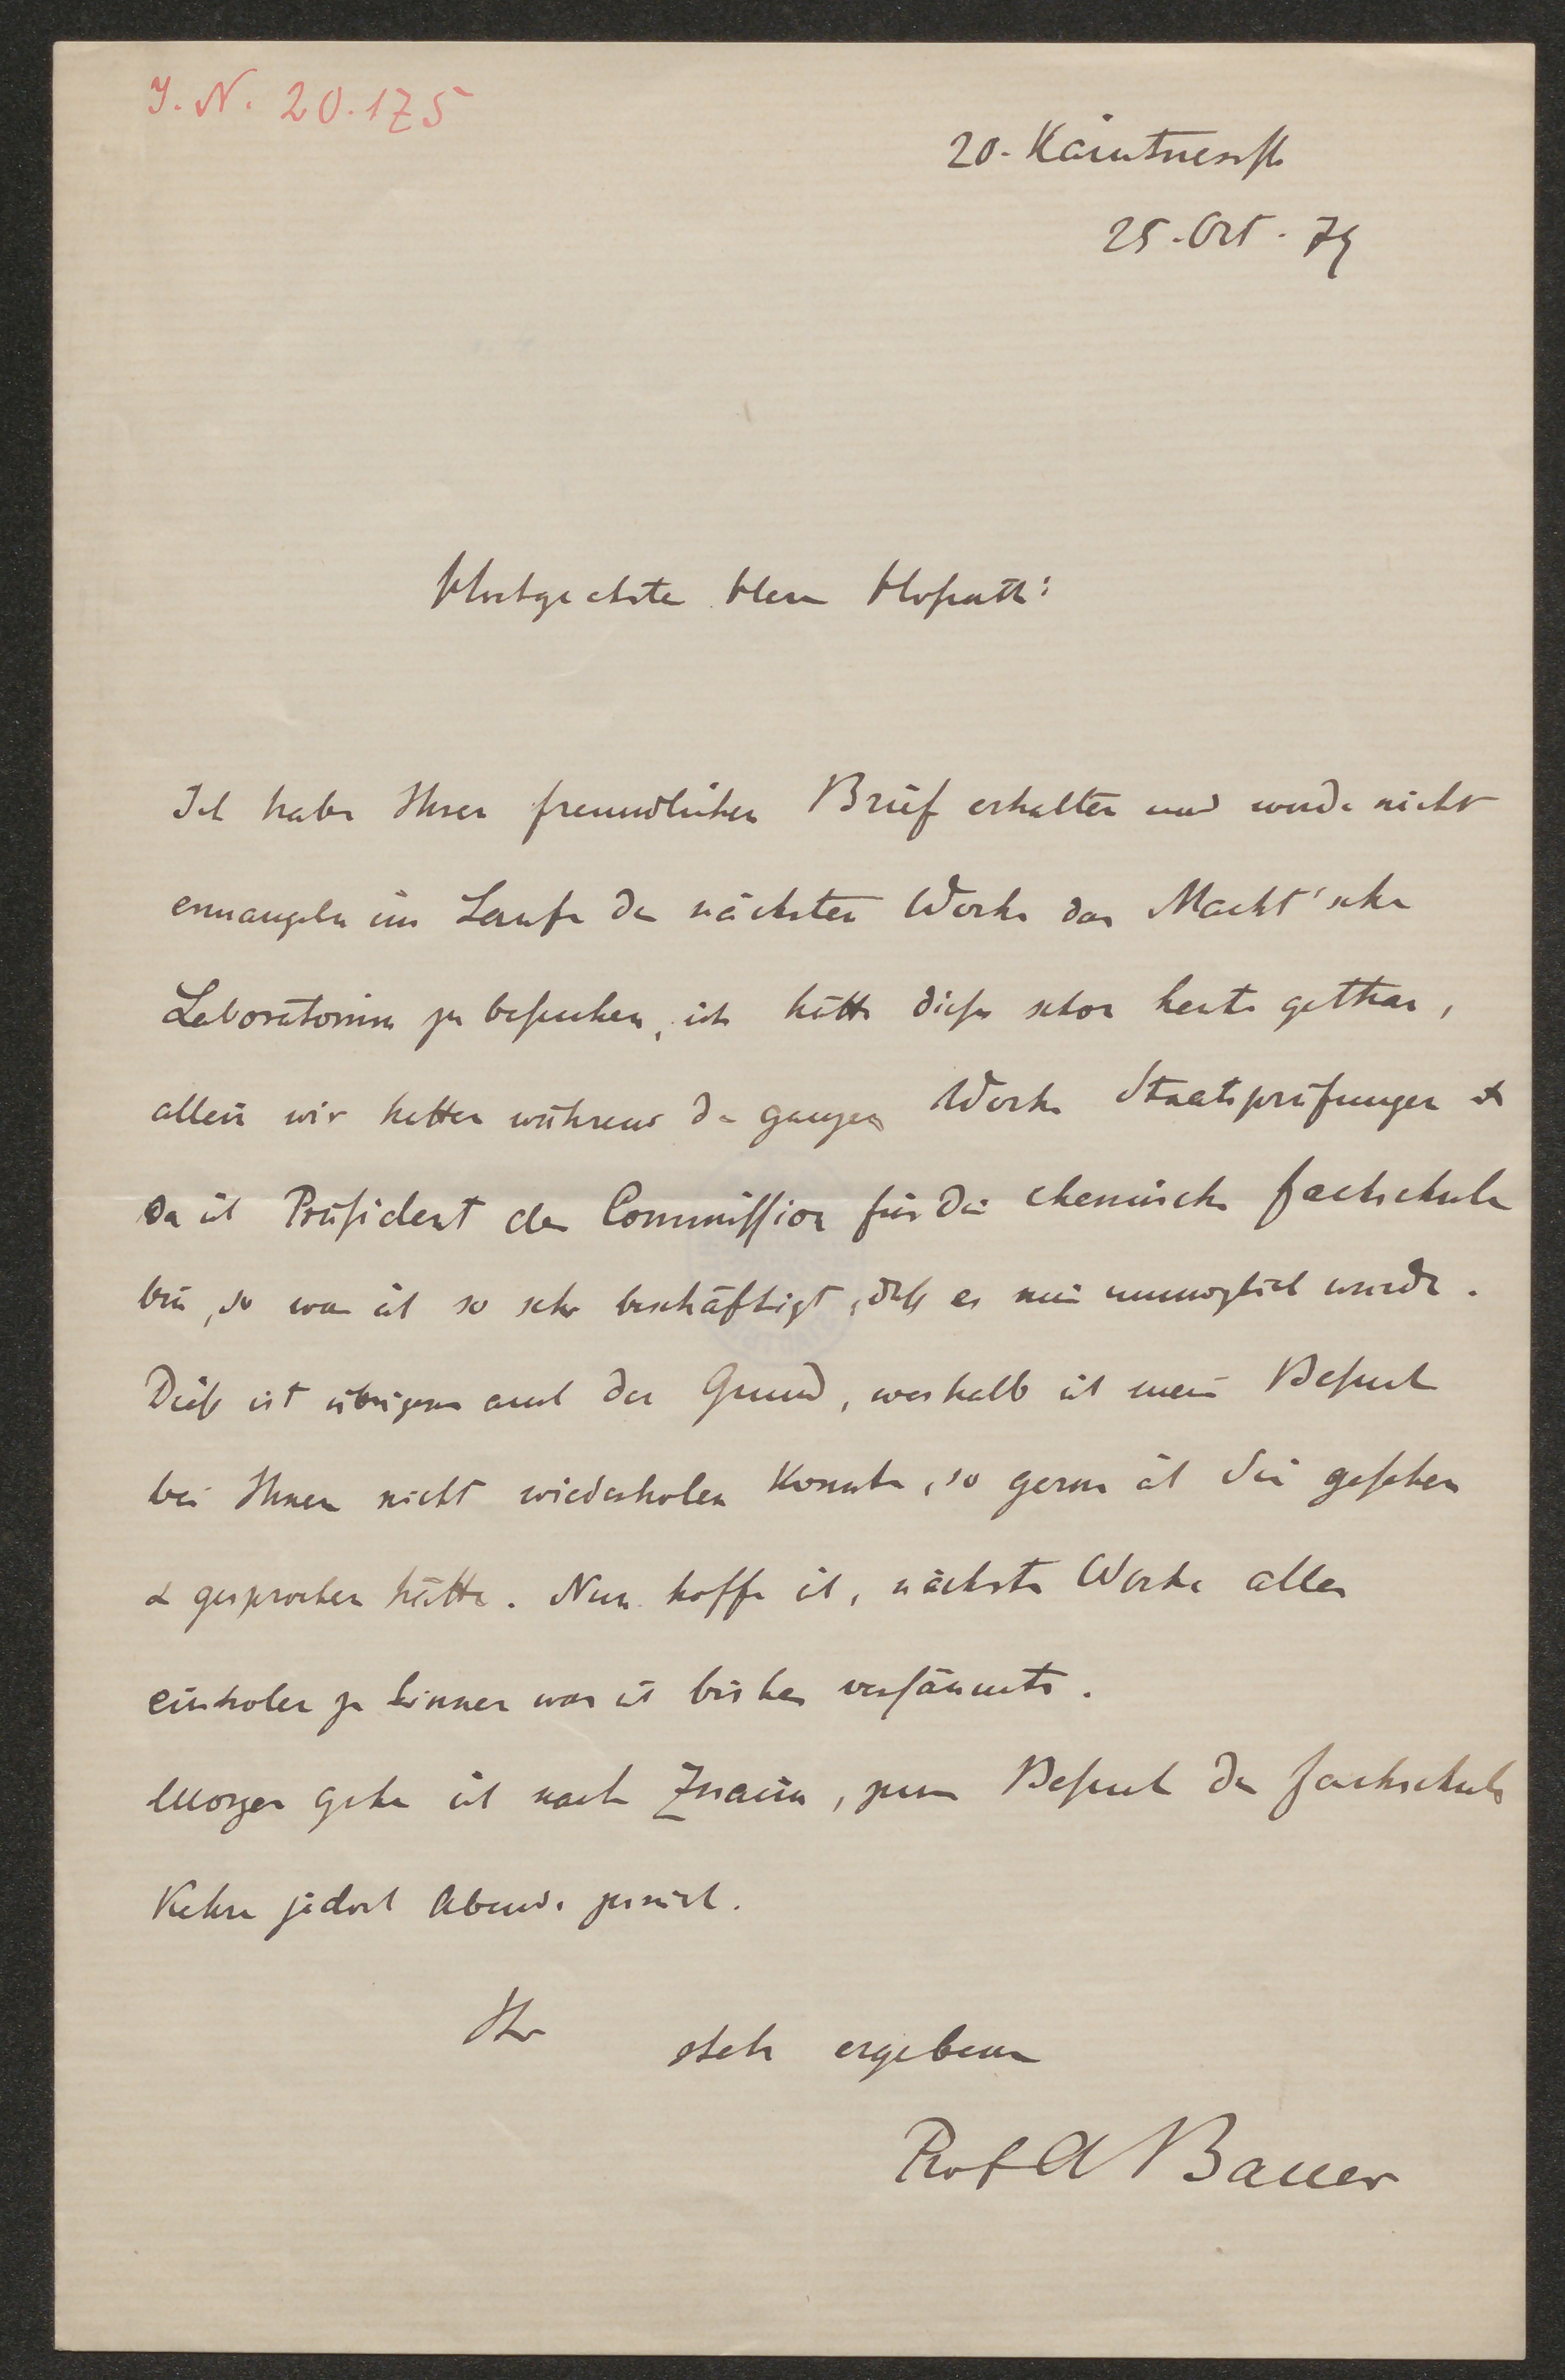 I. N. 20.175
20. Kärntnerstr
25. Oct. 79
Hochgeehrter Herr Hofrath!
Ich habe Ihren freundlichen Brief erhalten und werde nicht
ermangeln im Laufe der nächsten Woche das Macht'sche
Laboratorium zu besuchen, ich hätte dieses schon heute gethan,
allein wir hatten während der ganzen Woche Staatsprüfungen &
da ich Präsident der Commission für die chemische Fachschule
bin, so war ich so sehr beschäftigt, daß es mir unmöglich wurde.
Dieß ist übrigens auch der Grund, weshalb ich mein Besuch
bei Ihnen nicht wiederholen konnte, so gerne ich Sie gesehen
& gesprochen hätte. Nun hoffe ich, nächste Woche alles
einholen zu können was ich bisher versäumte.
Morgen gehe ich nach Znaim, zum Besuch der Fachschule
Kehre jedoch Abends zurück.
Ihr stets ergebener
Prof A Bauer